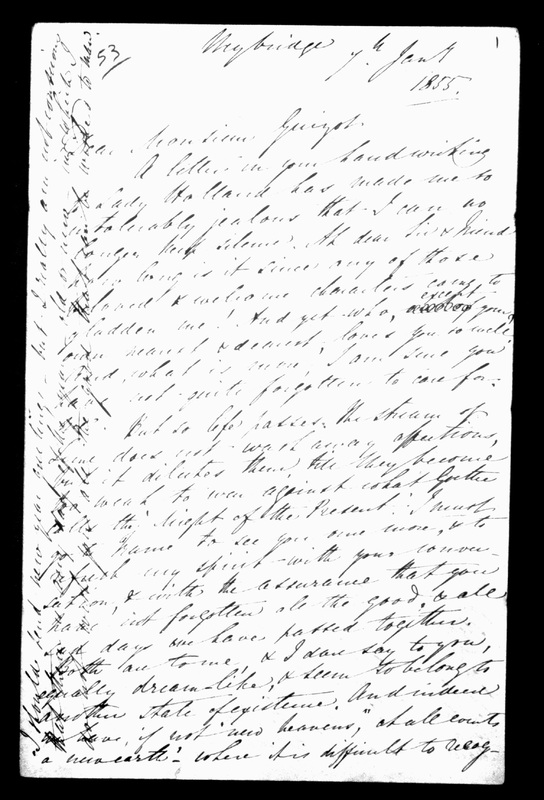 53
Weybridge 7th Jany
1855.
Dear Monsieur Guizot.
A letter in your handwriting
to Lady Holland has made me so
intolerably jealous that I can no
longer keep silence. Ah dear Sir & Friend
how long is it since any of those
beloved & welcome characters came to
gladden me! And yet who, except your
own nearest & dearest, loves you so well,
and, what is more, I am sure you
have not quite forgotten to care for
But so life passes. The stream of
time does not wash away affections,
but it dilutes them, till they become
too weak to war against what Goethe
calls the Might of the Present. I must
to see you once more, & to
refresh my spirit with your conver-
sation, & with the assurance that you
have not forgotten all the good, & all
sad days we have passed together.
Both are to me, & I dare say to you,
equally dream-like, & seem to belong to
another State of existence. And indeed
we have, if not "new heavens," at all events
a new earth" - where it is difficult to recog-
I should send new year greetings - but I really am not